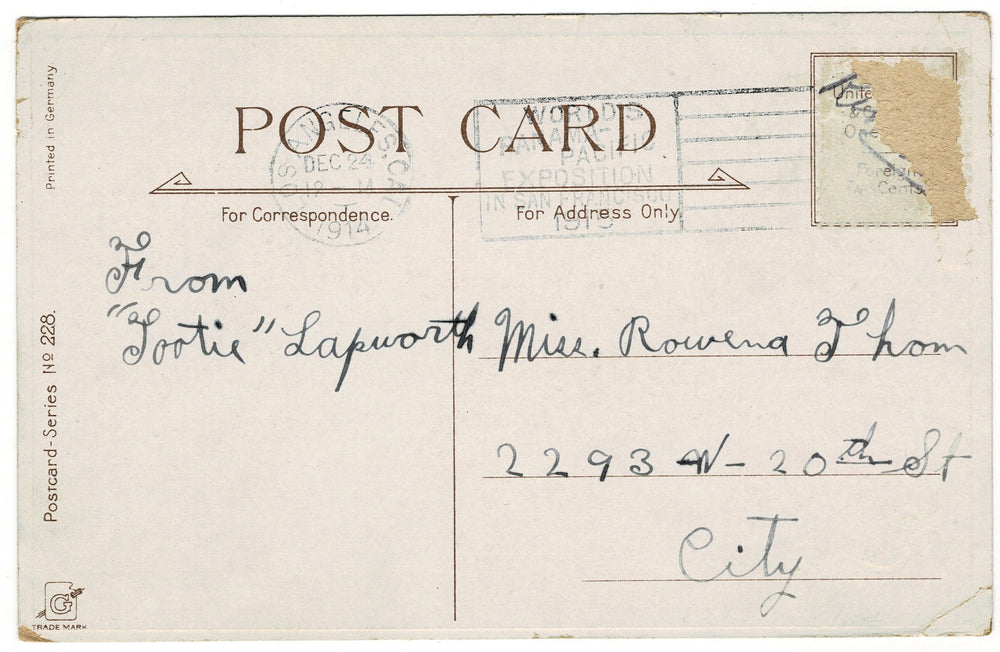 Printed in Germany.
POST CARD
LOS ANGELES, CAL
DEC 24
12 - M
1914
WORLD'S
PANAMA-
PACIFIC
EXPOSITION
IN SAN FRANCISCO
1915
Unite
Foreign
Two Cents
For Correspondence.
For Address Only.
From
"Tootie" Lapworth
Miss. Rowena Thom
2293 W- 20th St
City
Postcard-Series No 228.
G
TRADE MARK